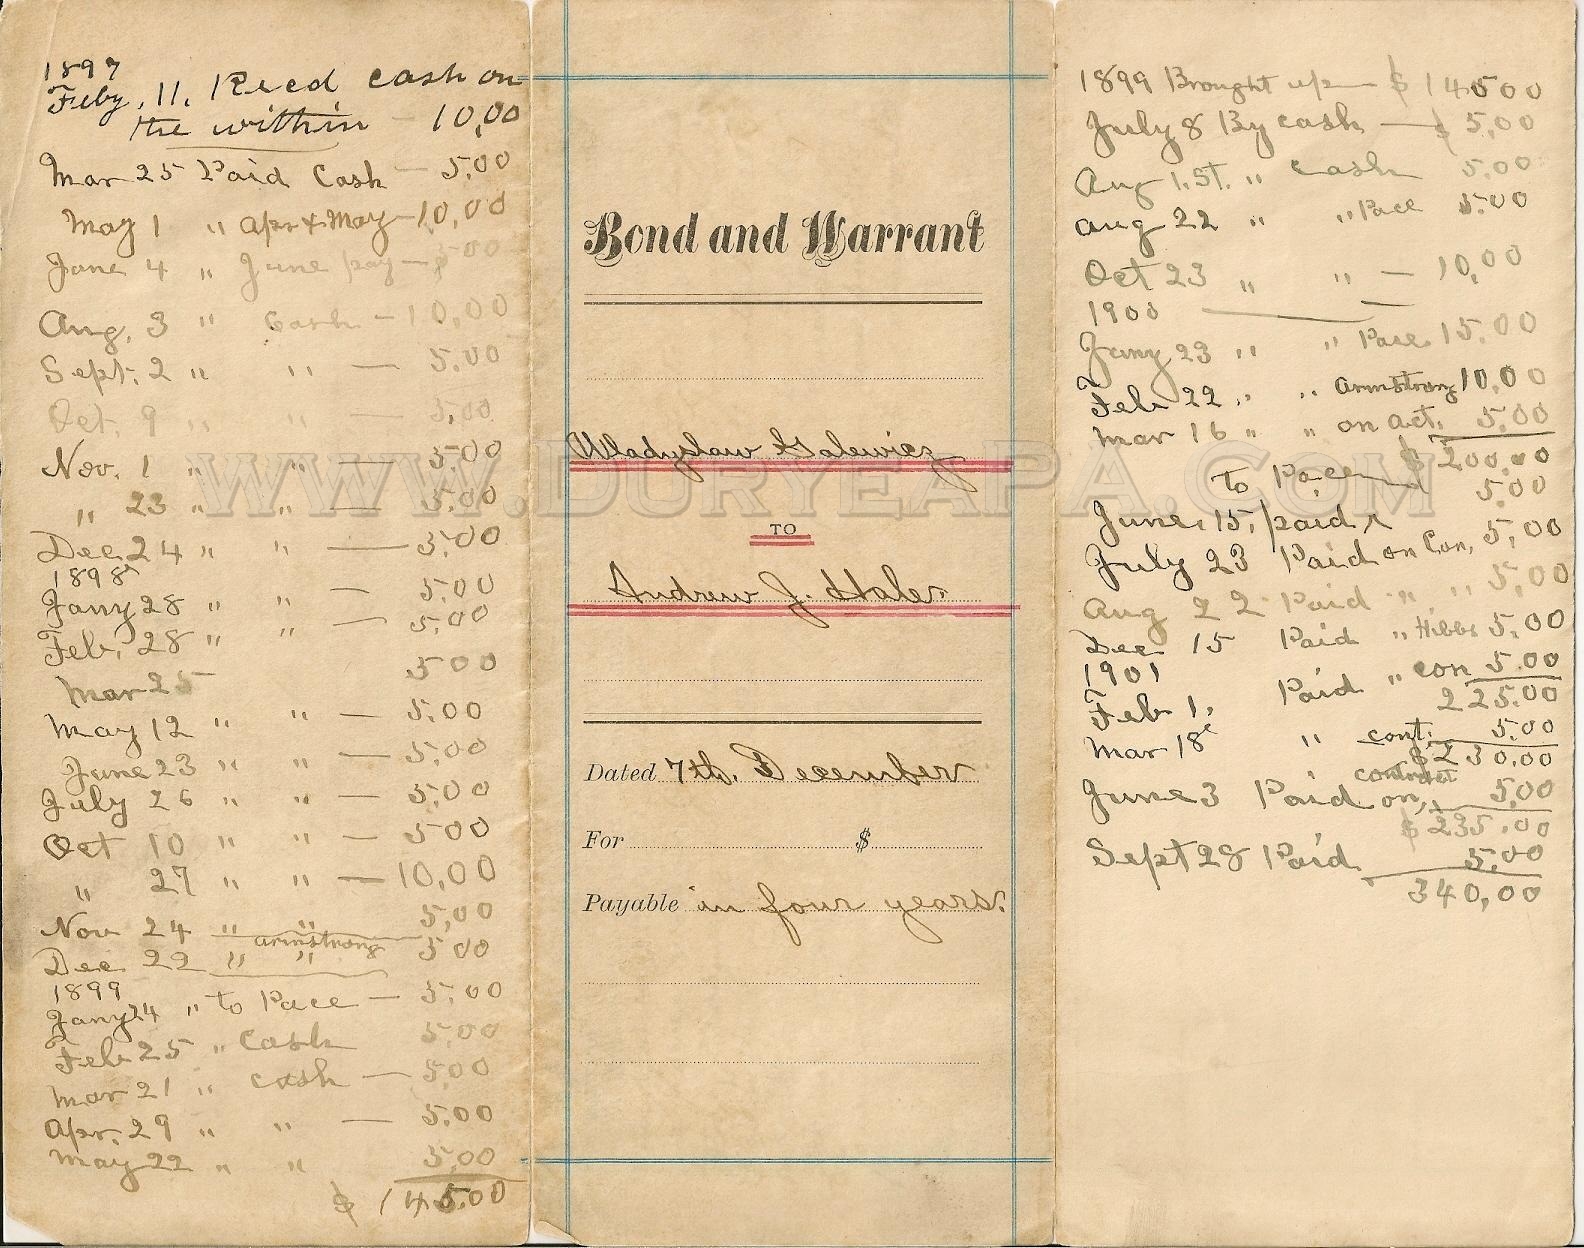 1897
Feby, 11, Recd cash on
the within - 10,00
Mar 25 Paid Cash - 5.00
May 1 " Apr & May - 10,00
June 4 " June pay - 5.00
Aug, 3 " Cash - 10,00
Sept. 2 " " - 5.00
Oct. 9 " " - 5,00
Nov. 1 " " - 5.00
" 23 " " - 5.00
Dec. 24 " " - 5.00
1898
Jany 28 " " - 5.00
Feb, 28 " " - 5.00
Mar 25 5 00
May 12 " " - 5.00
June 23 " " - 5.00
July 26 " " - 5.00
Oct 10 " " - 5.00
" 27 " " - 10,00
Nov 24 " " 5,00
Armstrong
Dec 22 " " 5 00
1899
Jany 24 " to Pace - 5.00
Feb 25 " Cash 5.00
Mar 21 " cash - 5.00
Apr. 29 " " - 5.00
May 22 " " 5.00
$ 145.00
Bond and Warrant
Wladyslaw Galewicz
TO
Andrew J. Haler
Dated 7th. December
For $
Payable in four years.
1899 Brought up - $ 145 00
July 8 By cash - $ 5,00
Aug 1.st. " Cash 5.00
Aug 22 " " Pace 5.00
Oct 23 " " - 10,00
1900
Jany 23 " " Pace 15.00
Feb 22 " " Armstrong 10,00
Mar 16 " " on act. 5.00
$ 200.00
to Pace 5.00
June, 15, paid
July 23 Paid on Con, 5,00
Aug 22 Paid " " 5,00
Dec 15 Paid " Hibbs 5.00
1901
Feb 1, Paid " con 5.00
225.00
Mar 18 " cont. 5.00
$ 230.00
contract
June 3 Paid on, 5,00
$ 235.00
Sept 28 Paid 5.00
340,00
WWW.DURYEAPA.COM